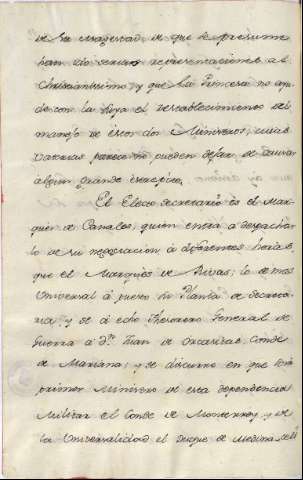 de su magestad, de que se presume
han ido serias representaciones al
Christianissimo, y que la Princesa no ayu
de con la suya el restablecimiento del
manejo de estos dos Ministros, cuias
vatorias parece no pueden dejar de
algun grande
El Electo secretario es el Mar
ques de Canales, quien entra a despachar
lo de su negociacion a diferentes horas
que el Marques de Rivas; lo demas
Universal a puesto en Planta de Secreta
ria y se a echo Thesorero General de
Guerra a Dn. Juan de Orcasitas, Conde
de Moriana; y se discurre en que
primer Ministro de esta dependencia
Militar el Conde de Monterrey, y de
la Universalidad el Duque de Medina